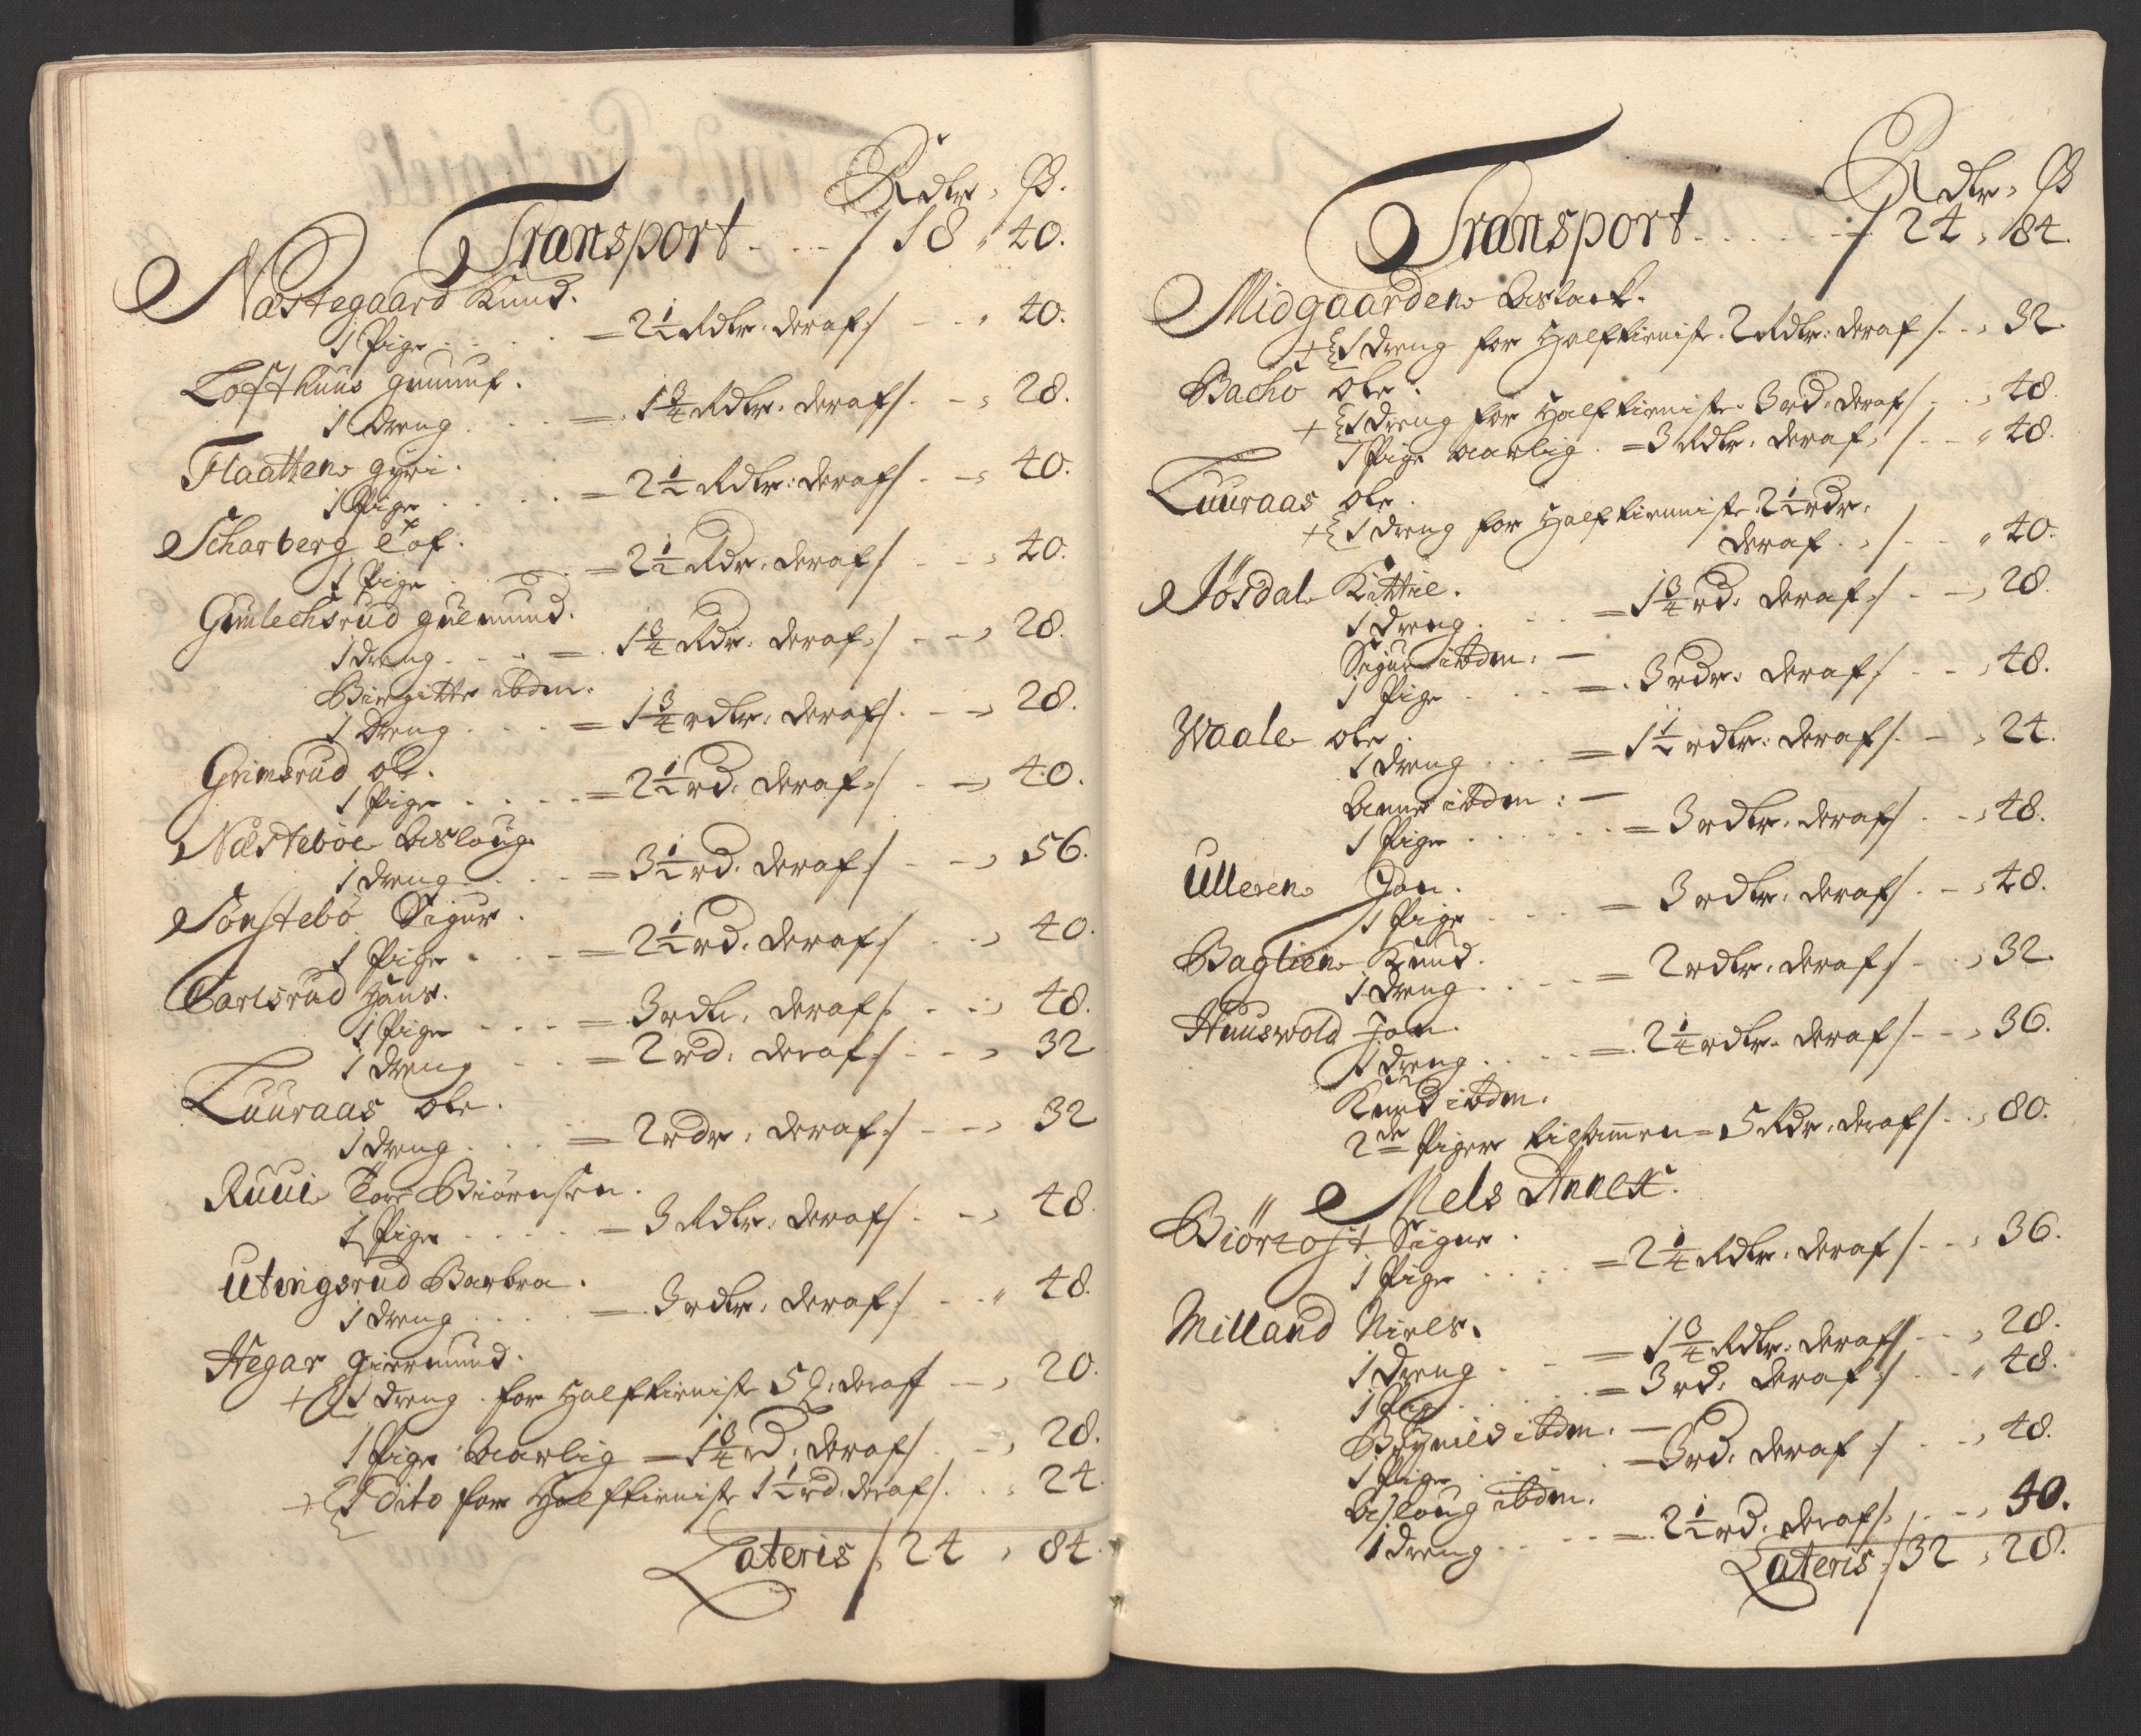 Rdlr, ß.
Transport - - - / 18 , 40.
Næstegaard Knud.
1 Pige . . . . = 2½ Rdlr. deraf / - - , 40.
Lofthuus Gunuf.
1 dreng . . . = 1¾ Rdlr. deraf / - , 28.
Flaatten Gyri.
1 Pige . . . . = 2½ Rdlr: deraf / - , 40.
Scharberg Elof.
1 Pige . . . = 2½ Rdr. deraf / - - , 40.
Gunlechsrud Guelmund.
1 dreng . . . = 1¾ Rdr. deraf / - - , 28.
Birgitte ibdm.
1 Dreng . . . = 1¾ rdlr. deraf / - - , 28.
Grimsrud Ole.
1 Pige . . . . = 2½ rd. deraf / - , 40.
Næsteböe Asloug
1 dreng . . . = 3½ rd. deraf / - - , 56.
Sönstebö Sigur.
1 Pige . . . = 2½ rd. deraf / . . , 40.
Carlsrud Hans.
1 Pige - - - = 3 rdlr, deraf / . . , 48.
1 dreng - - = 2 rd: deraf / - - , 32
Luuraas Ole.
1 dreng . . . = 2 rdr, deraf / - - , 32
Ruui Tore Biörnsen.
1 Pige . . . . = 3 Rdlr, deraf / - - , 48.
Utingsrud Barbra.
1 dreng . . . . = 3 rdlr. deraf / - - , 48.
Hegar Giermund.
+ { 1 dreng for Halftienist 5 deraf - , 20.
1 Pige Aarlig = 1¾ rd: deraf / . - , 28.
+ { 1 Dito for Halftienist 1½ rd. deraf / . . , 24.
Lateris / 24 , 84.
Rdlr, ß
Transport - - - - / 24 , 84.
Midgaarden Aslack.
+ { 1 dreng for Halftienist. 2 Rdlr: deraf / - - , 32.
Bachö Ole.
+ { 1 dreng for Halftieniste. 3 rd. deraf / - , 48.
1 Pige Aarlig . = 3 Rdlr: deraf / - - , 48.
Luuraas Ole.
+ { 1 dreng for Halftienniste: 2½ rdr.
deraf . , / - - , 40.
Jösdal Kittil.
1 dreng . . . = 1¾ rd: deraf / - - , 28.
Sigur ibdm: -
1 Pige . . . = . 3 rdr: deraf / - - , 48.
Waale Ole.
1 dreng . . . = 1½ rdlr. deraf / . - , 24.
Anne ibdm: -
1 Pige . . . . . = 3 rdlr. deraf / . - , 48.
Ulleren Jon.
1 Pige . . . = 3 rdlr. deraf / . - , 48.
Baglien Knud.
1 dreng . . . . = 2 rdlr. deraf / - . , 32.
Huuswold Jon.
1 dreng . . . = 2¼ rdlr. deraf / - - , 36.
Knud ibdm.
2de Piger tilsammen = 5 Rdr. deraf / . . , 80.
Mels Annex.
Biörtost Sigur.
1 Pige . . . . = 2¼ Rdlr. deraf / - - , 36.
Milland Niels.
1 dreng . . - = 1¾ Rdlr. deraf / - - , 28.
1 Pige . . . . = 3 rd: deraf / . . , 48.
Brynild ibdm. -
1 Pige . . . . = 3 rd: deraf / . . , 48.
Asloug ibdm.
1 dreng . . - = 2½ rd. deraf / . . , 40.
Lateris / 32 , 28.